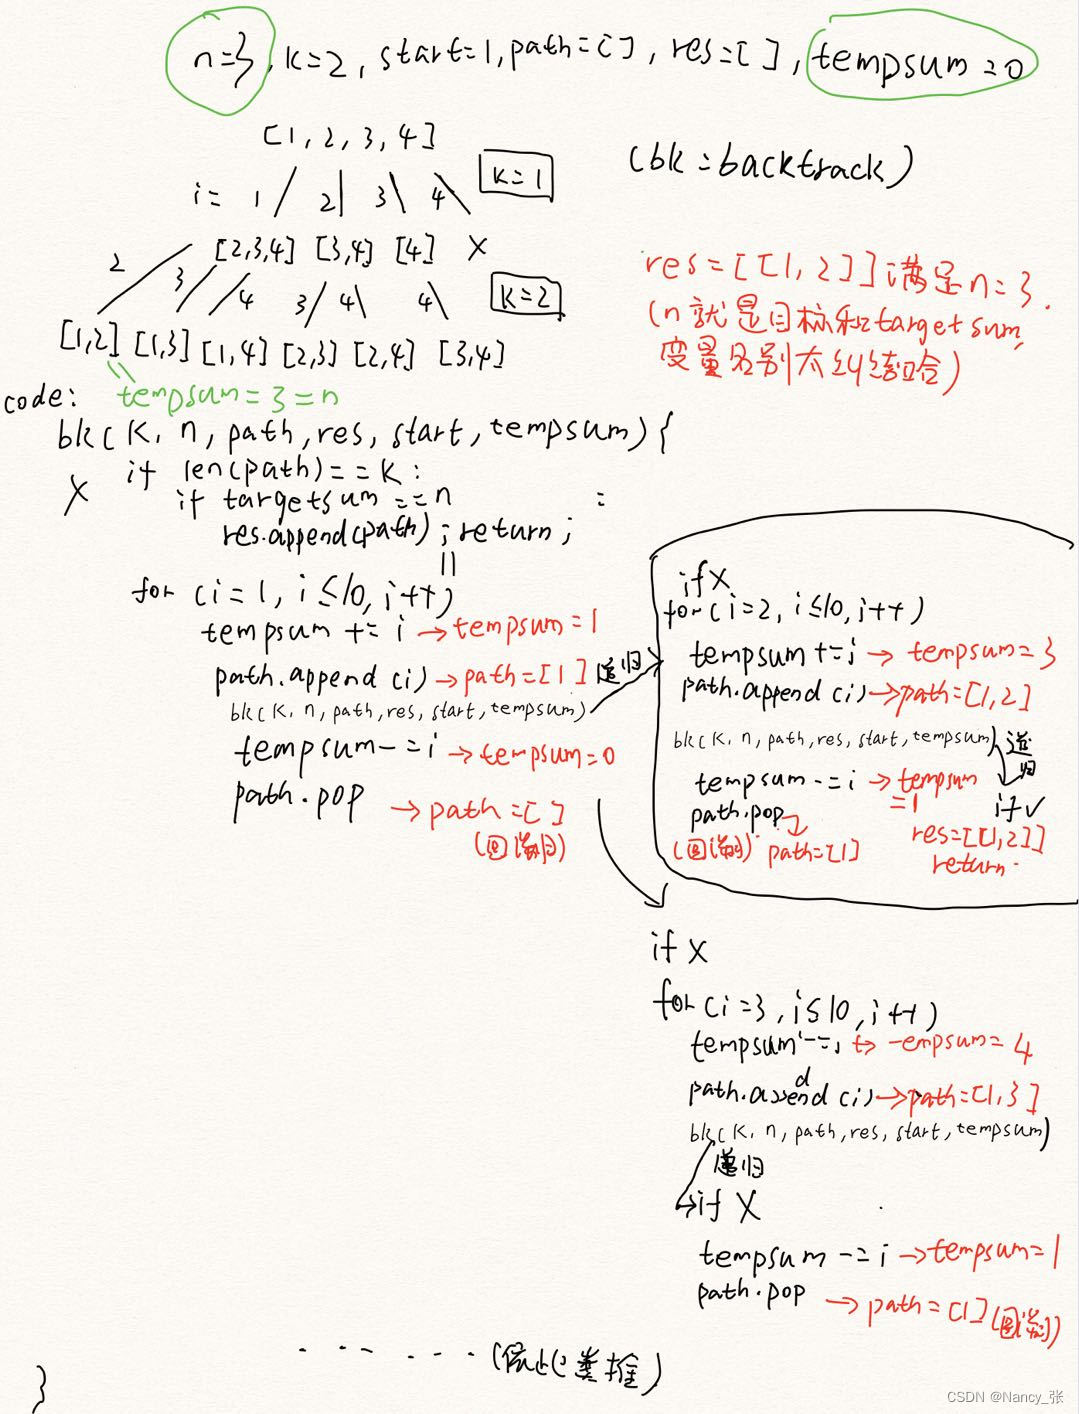 n=3, k=2, start=1, path=[], res=[], tempsum=0
[1, 2, 3, 4]
(bk=backtrack)
i= 1 2 3 4 k=1
[2,3,4] [3,4] [4] X
2 3 4 3 4 4 k=2
res=[[1,2]]满足n=3.
(n就是目标和targetsum,
变量名别太纠结哈)
[1,2] [1,3] [1,4] [2,3] [2,4] [3,4]
code: tempsum=3=n
bk(k, n, path, res, start, tempsum){
X if len(path)==k:
if targetsum==n :
res.append(path); return;
for(i=1, i≤10, i++)
tempsum += i → tempsum=1
path.append(i) → path=[1] 递归
bk(k, n, path, res, start, tempsum)
tempsum -= i → tempsum=0
path.pop → path=[]
(回溯)
if X
for(i=2, i≤10, i++)
tempsum += i → tempsum=3
path.append(i) → path=[1,2]
bk(k, n, path, res, start, tempsum) 递归
tempsum -= i → tempsum
=1
if √
path.pop
res=[[1,2]]
(回溯) path=[1]
return
if X
for(i=3, i≤10, i++)
tempsum -=i → tempsum=4
path.append(i) → path=[1,3]
bk(k, n, path, res, start, tempsum)
递归
→ if X
tempsum -= i → tempsum=1
path.pop → path=[1](回溯)
......(依此类推)
}
CSDN @Nancy_张